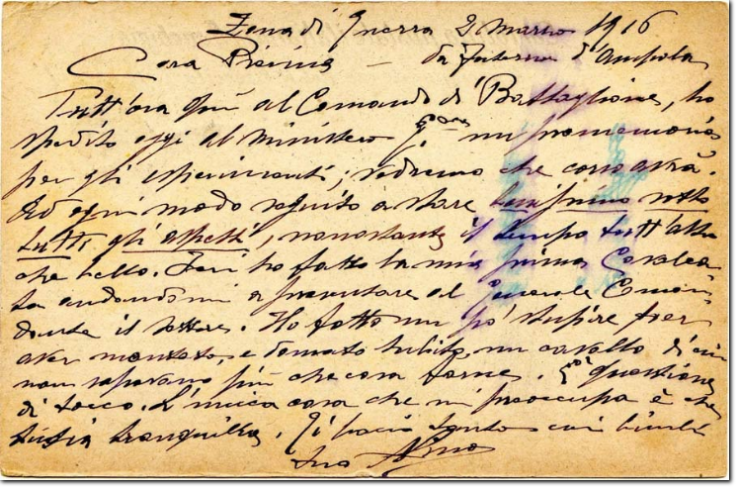 Zona di Guerra 2 Marzo 1916
Cara Pierina — da Interno d'Ampola
Tutt'ora qui al Comando di Battaglione, ho
spedito oggi al Ministero un promemoria
per gli esperimenti; vedremo che cosa avrà.
Ad ogni modo seguito a stare benissimo sotto
tutti gli aspetti, nonostante il tempo tutt'altro
che bello. Ieri ho fatto la mia prima Cavalca
ta andandomi a presentare al Generale Coman
dante il settore. Ho fatto un po' stupire per
aver montato, e domato subito, un cavallo di cui
non sapevano più che cosa farne. questione
di tocco. L'unica cosa che mi preoccupa è che
tu sia tranquilla. Ti bacio tanto coi bimbi
tuo